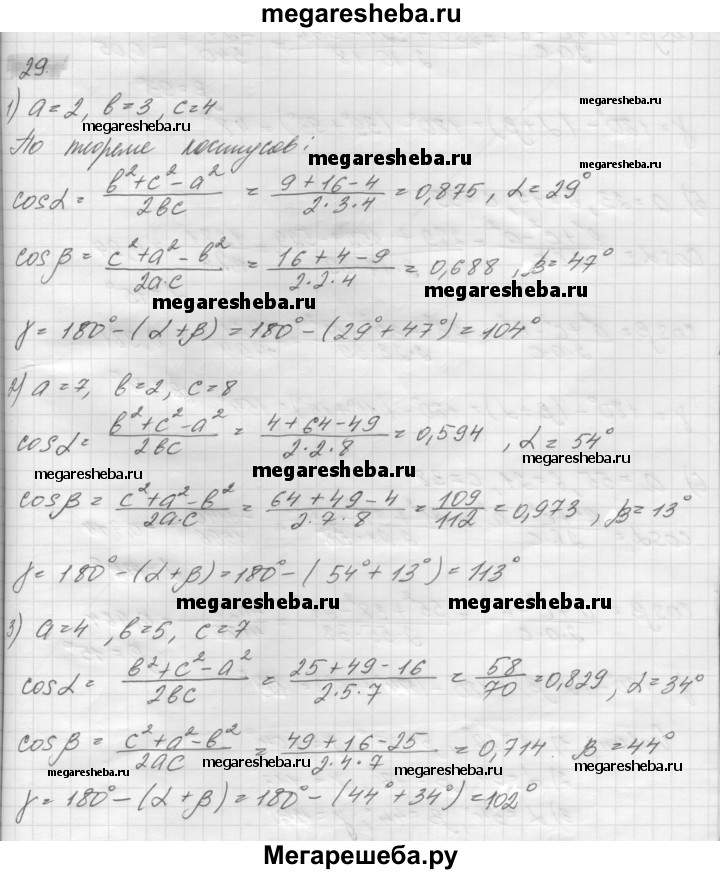 megaresheba.ru
29.
1) a = 2, b = 3, c = 4
megaresheba.ru
megaresheba.ru
По теореме косинусов:
megaresheba.ru
cosα = (b² + c² - a²)/(2bc) = (9 + 16 - 4)/(2·3·4) = 0,875, α = 29°
megaresheba.ru
cosβ = (c² + a² - b²)/(2a·c) = (16 + 4 - 9)/(2·2·4) = 0,688, β = 47°
megaresheba.ru
megaresheba.ru
γ = 180° - (α + β) = 180° - (29° + 47°) = 104°
megaresheba.ru
2) a = 7, b = 2, c = 8
megaresheba.ru
cosα = (b² + c² - a²)/(2bc) = (4 + 64 - 49)/(2·2·8) = 0,594, α = 54°
megaresheba.ru
megaresheba.ru
megaresheba.ru
cosβ = (c² + a² - b²)/(2a·c) = (64 + 49 - 4)/(2·7·8) = 109/112 = 0,973, β = 13°
megaresheba.ru
γ = 180° - (α + β) = 180° - (54° + 13°) = 113°
megaresheba.ru
megaresheba.ru
3) a = 4, b = 5, c = 7
megaresheba.ru
cosα = (b² + c² - a²)/(2bc) = (25 + 49 - 16)/(2·5·7) = 58/70 = 0,829, α = 34°
megaresheba.ru
cosβ = (c² + a² - b²)/(2ac) = (49 + 16 - 25)/(2·4·7) = 0,714 β = 44°
megaresheba.ru
megaresheba.ru
megaresheba.ru
megaresheba.ru
γ = 180° - (α + β) = 180° - (44° + 34°) = 102°
Мегарешеба.ру